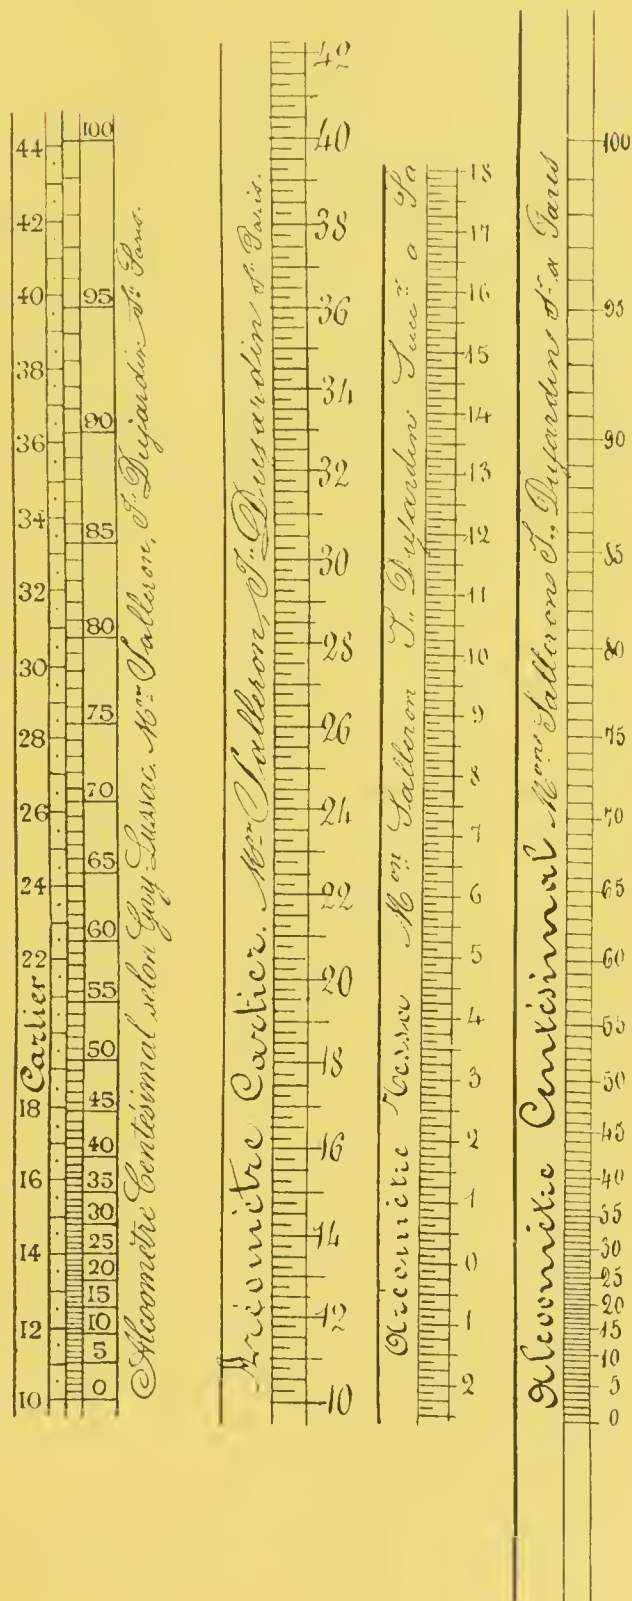 44
42
40
38
36
34
32
30
28
26
24
22
Cartier
18
16
14
12
10
100
95
90
85
80
75
70
65
60
55
50
45
40
35
30
25
20
15
10
5
0
Alcoomètre Centésimal selon Gay-Lussac. Mon Salleron, J. Dujardin Sr. Paris.
Aréomètre Cartier. Mon Salleron, J. Dujardin Sr Paris.
42
40
38
36
34
32
30
28
26
24
22
20
18
16
14
12
10
Aréomètre Mon Salleron J. Dujardin Succr a
18
17
16
15
14
13
12
11
10
9
8
7
6
5
4
3
2
1
0
1
2
Alcoomètre Centésimal Mons Salleron J. Dujardin Sr a Paris
100
95
90
85
80
75
70
65
60
55
50
45
40
35
30
25
20
15
10
5
0